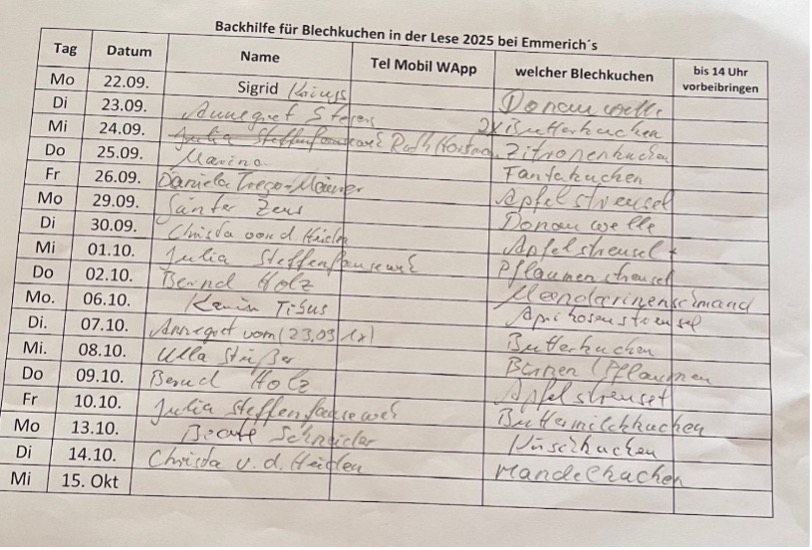 Backhilfe für Blechkuchen in der Lese 2025 bei Emmerich´s
Tag Datum Name Tel Mobil WApp welcher Blechkuchen bis 14 Uhr vorbeibringen
Mo 22.09. Sigrid Donauwelle
Di 23.09. Annegret 2x Butterkuchen
Mi 24.09. Julia Steffenfauseweh Ruth Zitronenkuchen
Do 25.09. Marina Fantakuchen
Fr 26.09. Daniela Apfelstreusel
Mo 29.09. Donauwelle
Di 30.09. Christa von d. Heiden Apfelstreusel
Mi 01.10. Julia Steffenfauseweh Pflaumenstreusel
Do 02.10. Bernd Holz Mandarinenschmand
Mo. 06.10. Titus Aprikosenstreusel
Di. 07.10. Annegret vom (23.09 1x) Butterkuchen
Mi. 08.10. Ulla Birnen / Pflaumen
Do 09.10. Bernd Holz Apfelstreusel
Fr 10.10. Julia Steffenfauseweh Buttermilchkuchen
Mo 13.10. Beate Schneider
Di 14.10. Christa v. d. Heiden Mandelkuchen
Mi 15. Okt